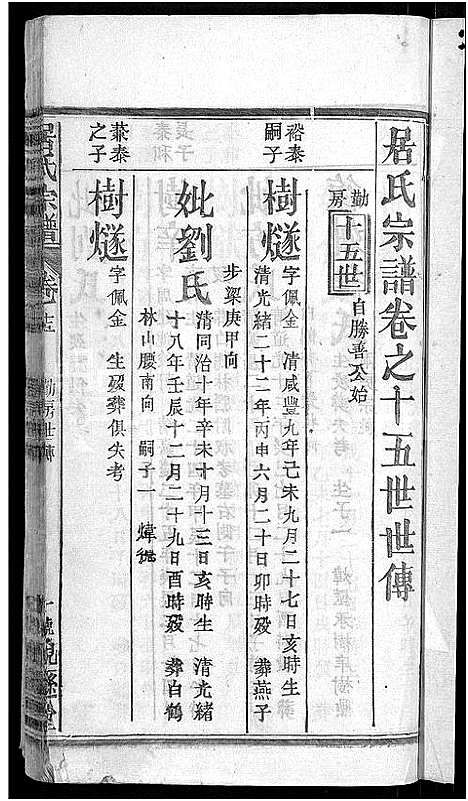 居氏宗譜卷之十五世世傳
勤房
十五世
自勝善公始
裕泰嗣子
樹燧
字佩金 清咸豐九年己未九月二十七日亥時生
清光緒二十二年丙申六月二十日卯時殁 葬燕子
步梁庚甲向
妣劉氏
清同治十年辛未十月十三日亥時生 清光緒
十八年壬辰十二月二十九日酉時殁 葬白鶴
林山腰南向 嗣子一
葇泰之子
樹燧
字佩金 生殁葬俱失考
居氏宗譜